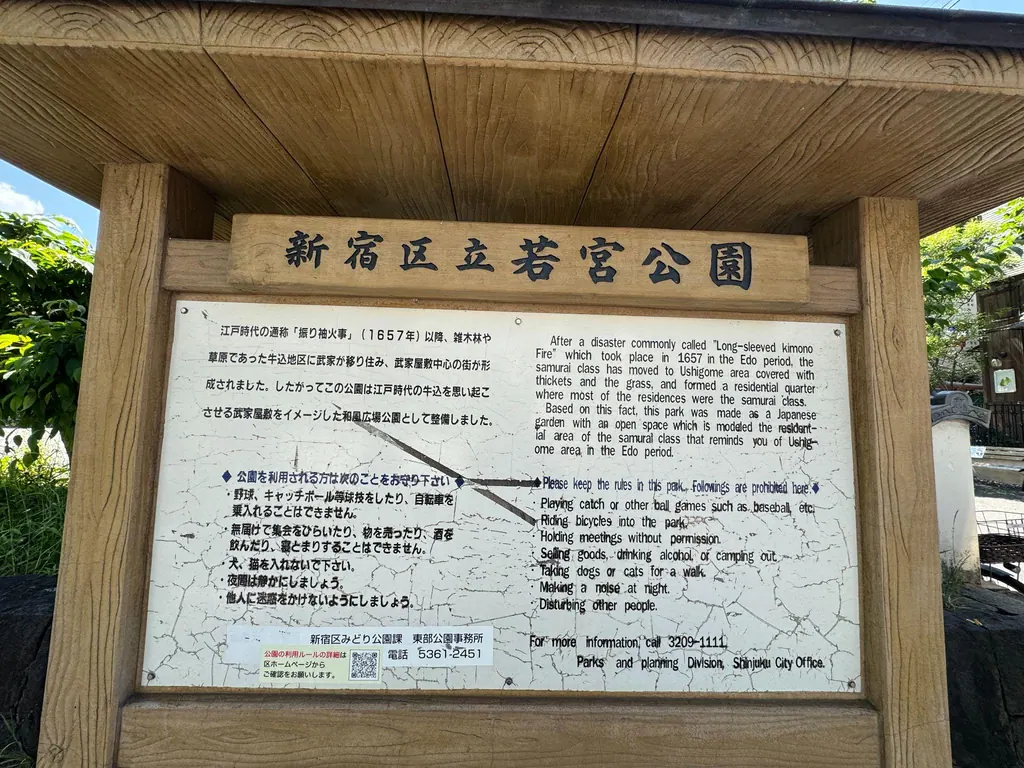 新宿区立若宮公園
江戸時代の通称「振り袖火事」（1657年）以降、雑木林や
草原であった牛込地区に武家が移り住み、武家屋敷中心の街が形
成されました。したがってこの公園は江戸時代の牛込を思い起こ
させる武家屋敷をイメージした和風広場公園として整備しました。
◆ 公園を利用される方は次のことをお守り下さい ◆
・野球、キャッチボール等球技をしたり、自転車を
乗入れることはできません。
・無届けで集会をひらいたり、物を売ったり、酒を
飲んだり、寝とまりすることはできません。
・犬、猫を入れないで下さい。
・夜間は静かにしましょう。
・他人に迷惑をかけないようにしましょう。
新宿区みどり公園課 東部公園事務所
電話 5361-2451
公園の利用ルールの詳細は
区ホームページから
ご確認をお願いします。
After a disaster commonly called "Long-sleeved kimono
Fire" which took place in 1657 in the Edo period, the
samurai class has moved to Ushigome area covered with
thickets and the grass, and formed a residential quarter
where most of the residences were the samurai class.
Based on this fact, this park was made as a Japanese
garden with an open space which is modeled the resident-
ial area of the samurai class that reminds you of Ushig-
ome area in the Edo period.
◆Please keep the rules in this park. Followings are prohibited here.◆
Playing catch or other ball games such as baseball, etc.
Riding bicycles into the park.
Holding meetings without permission.
Selling goods, drinking alcohol, or camping out.
Taking dogs or cats for a walk.
Making a noise at night.
Disturbing other people.
For more information, call 3209-1111.
Parks and planning Division, Shinjuku City Office.